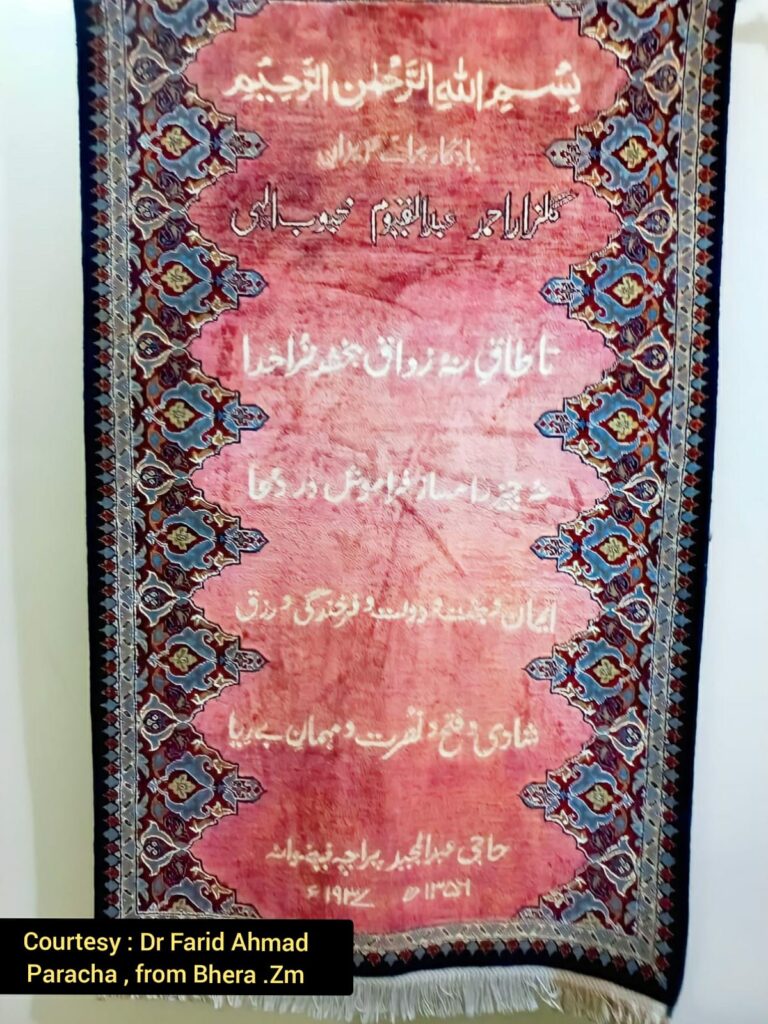 بِسْمِ اللهِ الرَّحْمٰنِ الرَّحِيْمِ
یادگار برائے عزیزانی
گلزار احمد عبدالقیوم محبوب الٰہی
تا طاقِ نہ رواق بخشد ترا خدا
نہ چیز را مساز فراموش در دعا
ایمان و بخت و دولت و فرخندگی و رزق
شادی و فتح و نصرت و مہمان بے ریا
حاجی عبدالمجید پراچہ
۱۳۵۶ ھ ۱۹۳۷ ء
Courtesy : Dr Farid Ahmad
Paracha , from Bhera .Zm